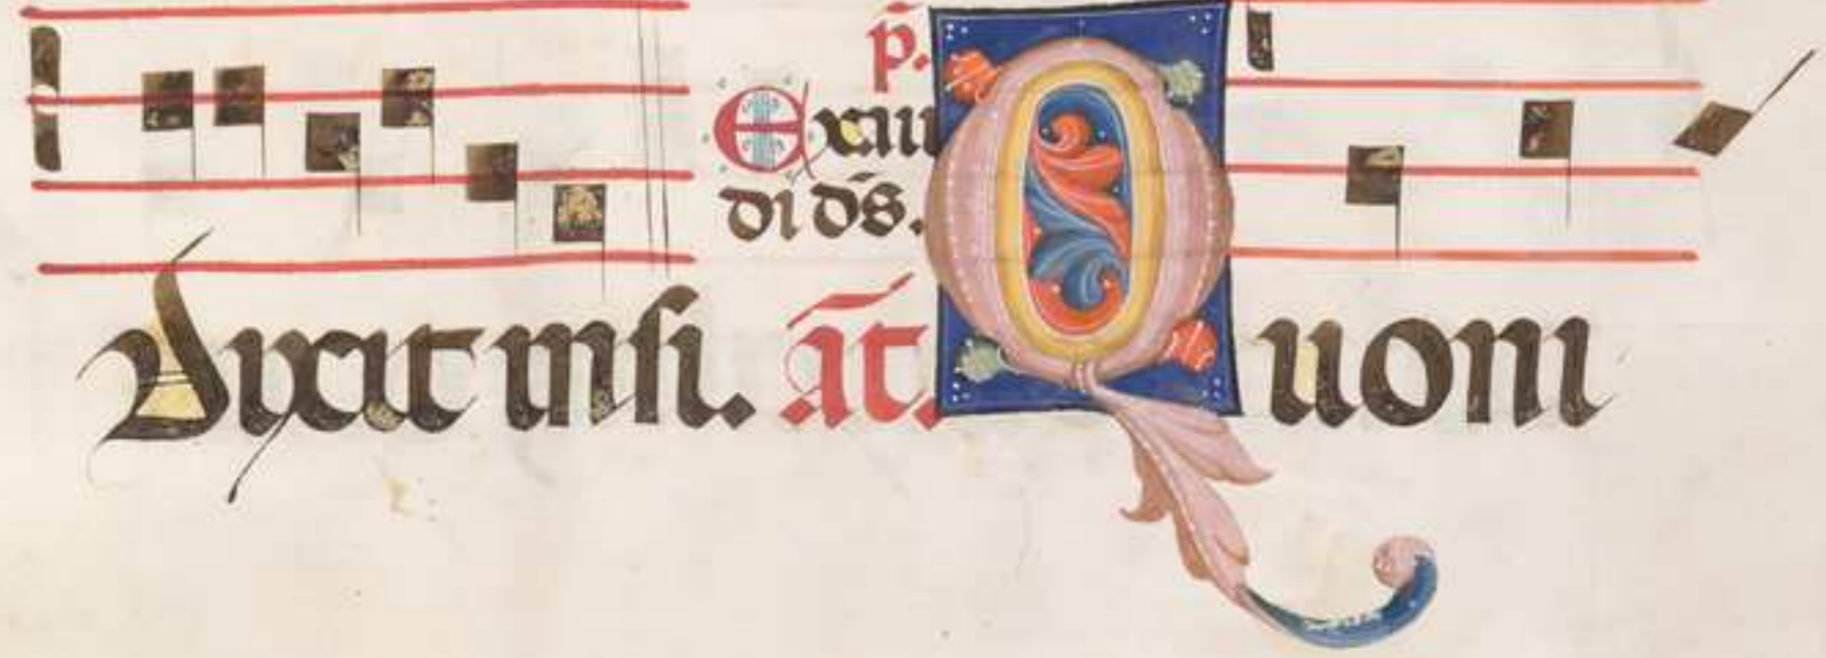 p̄.
Exau
di d̄s.
Dixit insi. āt. Quoni